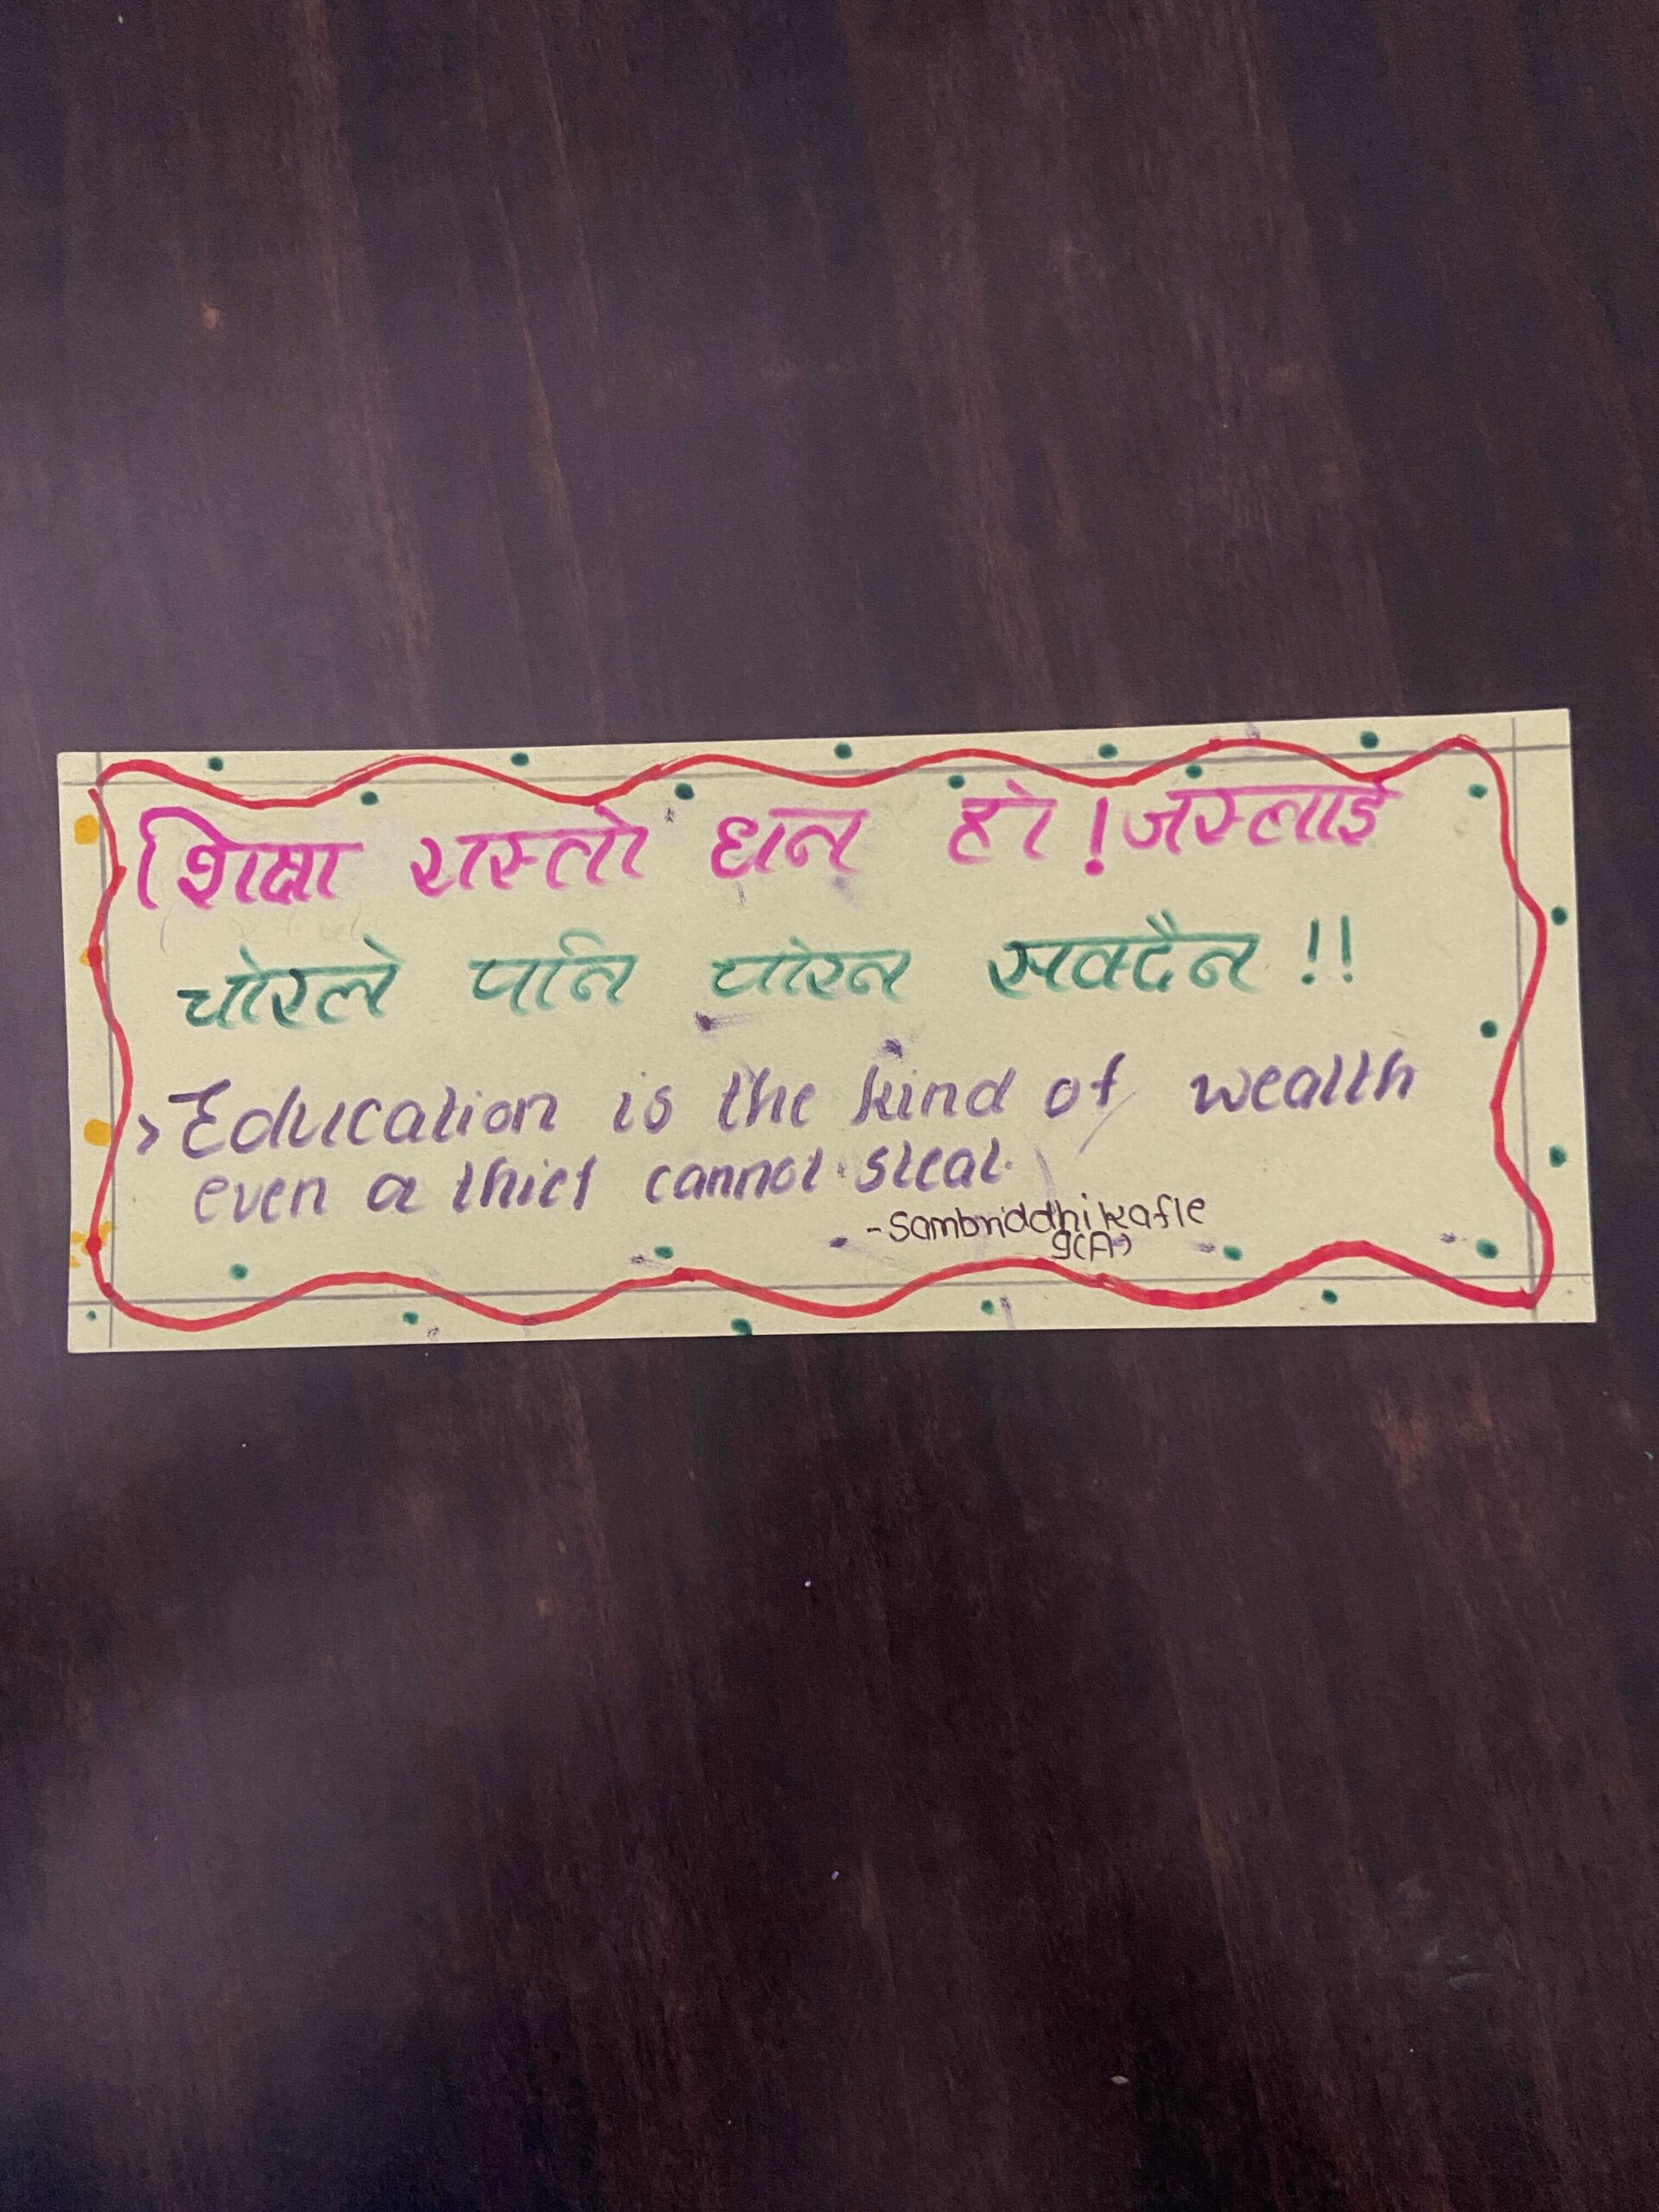 शिक्षा यस्तो धन हो! जस्लाई
चोरले पनि चोरन सक्दैन!!
> Education is the kind of wealth
even a thief cannot steal.
- Sambriddhi kafle
9(A)